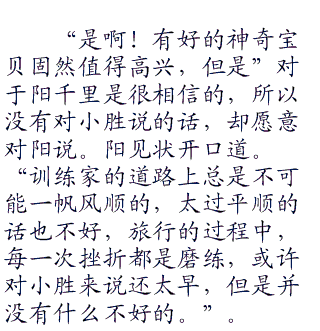 “是啊！有好的神奇宝
贝固然值得高兴，但是”对
于阳千里是很相信的，所以
没有对小胜说的话，却愿意
对阳说。阳见状开口道。
“训练家的道路上总是不可
能一帆风顺的，太过平顺的
话也不好，旅行的过程中，
每一次挫折都是磨练，或许
对小胜来说还太早，但是并
没有什么不好的。”。